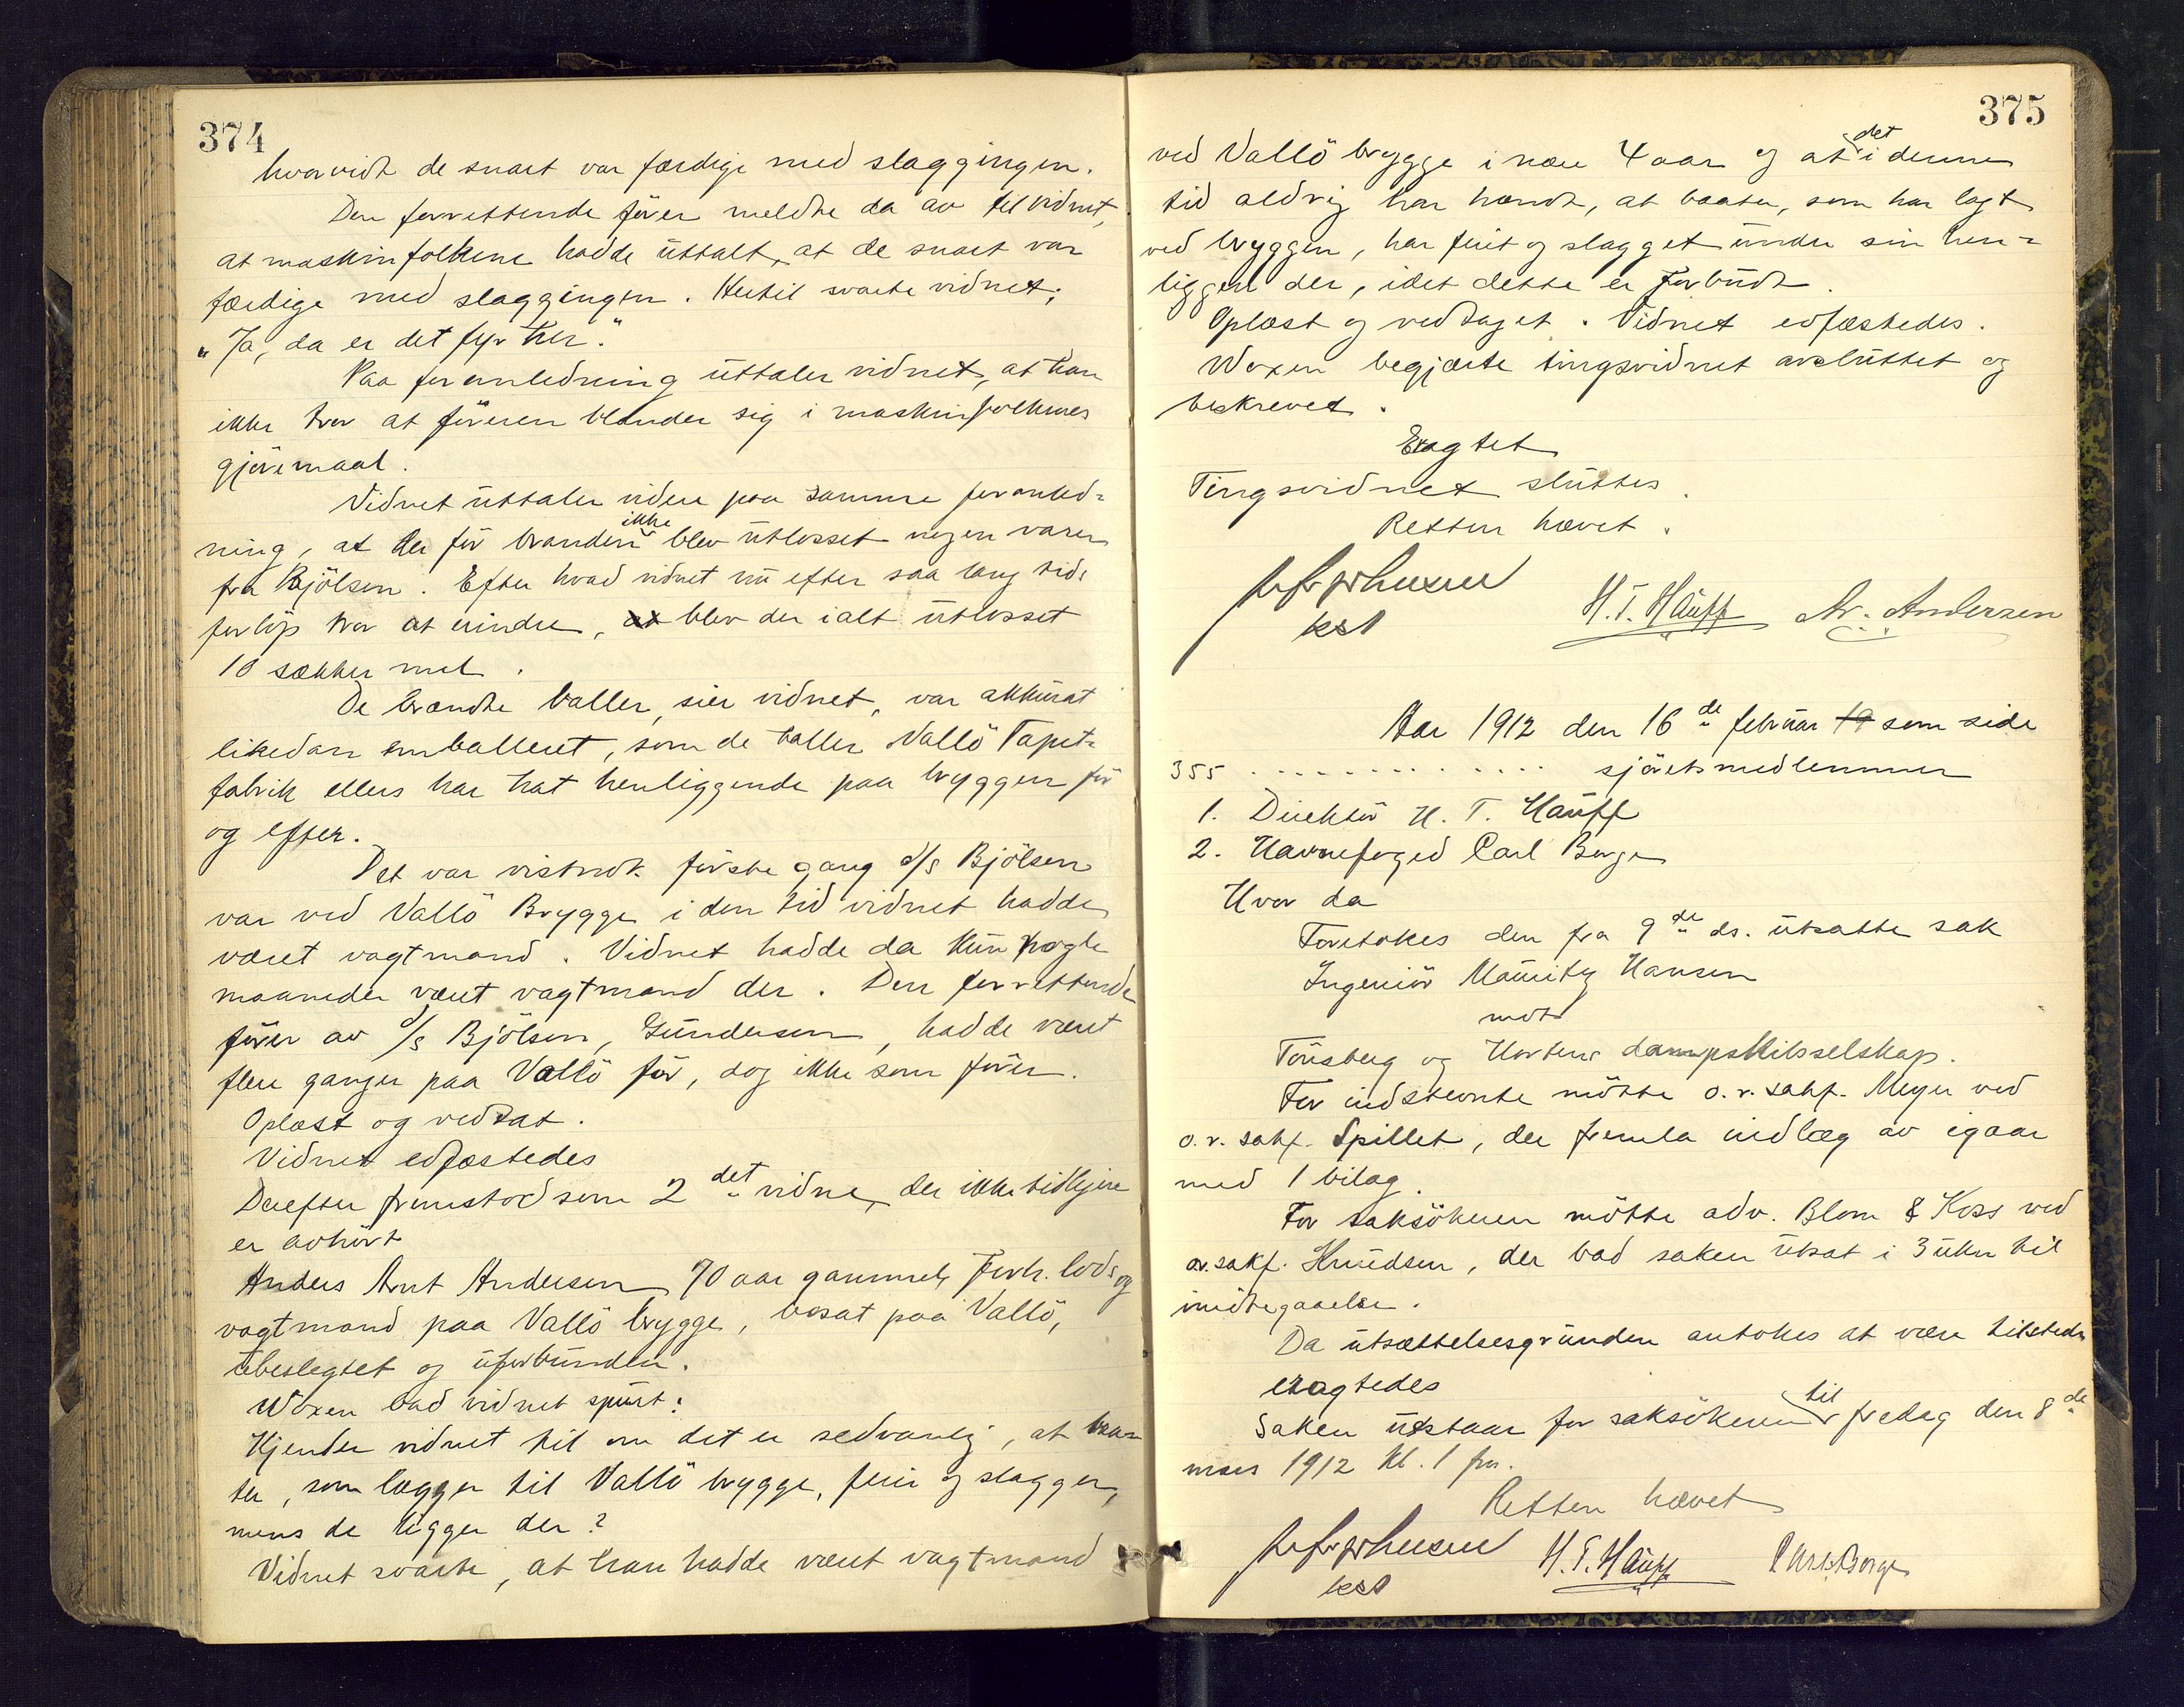 374
hvorvidt de snart var færdige med slaggingen.
Den forrettende fører meldte da av til vidnet,
at maskinfolkene hadde uttalt, at de snart var
færdige med slaggingen. Hertil svarte vidnet;
"Ja, da er det fyr her."
Paa foranledning uttaler vidnet, at han
ikke tror at føreren blander sig i maskinfolkenes
gjøremaal.
Vidnet uttaler videre paa samme foranled=
ning, at der før branden ikke blev utlosset nogen varer
fra Bjölsen. Efter hvad vidnet nu efter saa lang tids
forløp tror at erindre, at blev der ialt utlosset
10 sækker mel.
De brændte baller, sier vidnet, var akkurat
likedan emballeret, som de baller Vallö Tapet=
fabrik ellers har hat henliggende paa bryggen før
og efter.
Det var vistnok første gang d/s Bjölsen
var ved Vallö Brygge i den tid vidnet hadde
været vagtmand. Vidnet hadde da kun nogle
maaneder været vagtmand der. Den forrettende
fører av d/s Bjölsen, Gundersen, hadde været
flere ganger paa Vallö før, dog ikke som fører.
Oplæst og vedtat.
Vidnet edfæstedes
Derefter fremstod som 2det vidne, der ikke tidligere
er avhørt
Anders Arnt Andersen 70 aar gammel, forh. lods og
vagtmand paa Vallö brygge, bosat paa Vallö,
ubeslegtet og uforbunden.
Woxen bad vidnet spurt:
Kjender vidnet til om det er sedvanlig, at baa=
ter, som lægger til Vallö brygge, feier og slagger,
mens de ligger der?
Vidnet svarte, at han hadde været vagtmand
375
ved Vallö brygge i næer 4 aar og at det i denne
tid aldrig har hændt, at baater, som har lagt
ved bryggen, har feiet og slagget under sin hen=
liggen der, idet dette er forbudt.
Oplæst og vedtaget. Vidnet edfæstedes.
Woxen begjærte tingsvidnet avsluttet og
beskrevet.
Eragtet
Tingsvidnet sluttes.
Retten hævet.
kst H. T. Hauff Ar. Andersen
Aar 1912 den 16de februar 19 som side
355 . . . . . . . . . . . . sjöretsmedlemmer
1. Direktör H. T. Hauff
2. Havnefoged Carl Borge
Hvor da
Foretokes den fra 9de ds. utsatte sak
Ingeniör Mauritz Hansen
mot
Tönsberg og Hortens dampskibsselskap.
For indstevnte mötte o.r.sakf. Meyer ved
o.r.sakf. Spillet, der fremla indlæg av igaar
med 1 bilag.
For saksökeren mötte adv. Blom & Koss ved
o.r.sakf. Knudsen, der bad saken utsat i 3 uker til
imötegaaelse.
Da utsættelsesgrunden antokes at være tilstede
eragtedes
Saken utstaar for saksökeren til fredag den 8de
mars 1912 kl. 1 fm.
Retten hævet
kst H. T. Hauff Carl Borge